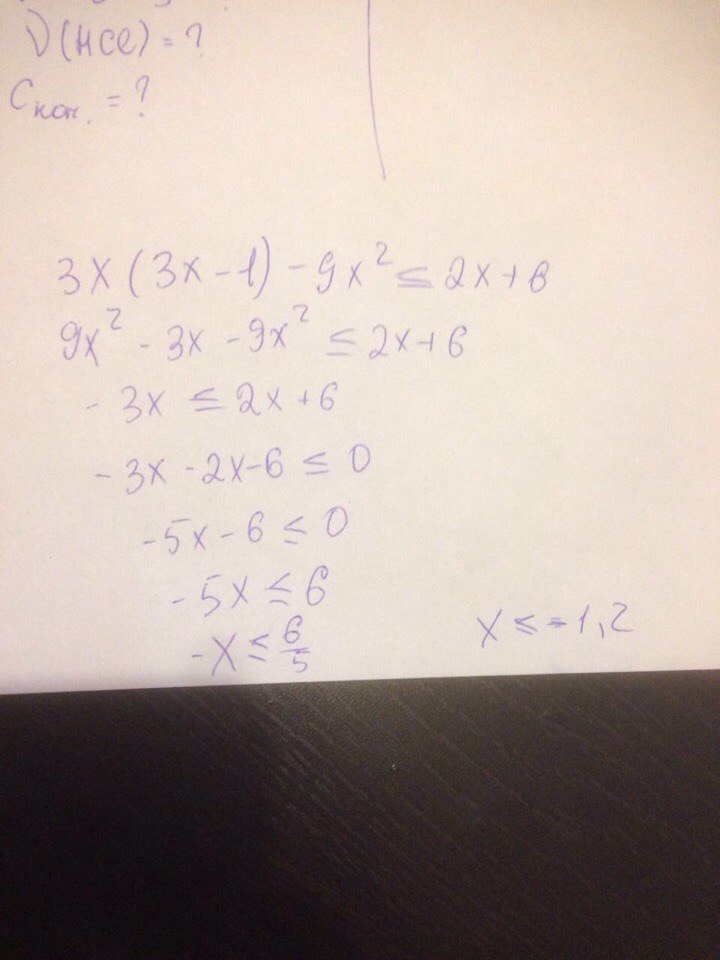 ν(HCl) = ?
Cкон. = ?
3x(3x-1) - 9x² ≤ 2x+6
9x² - 3x - 9x² ≤ 2x+6
- 3x ≤ 2x+6
- 3x - 2x - 6 ≤ 0
-5x - 6 ≤ 0
- 5x ≤ 6
-x ≤ 6/5
x ≤ -1,2